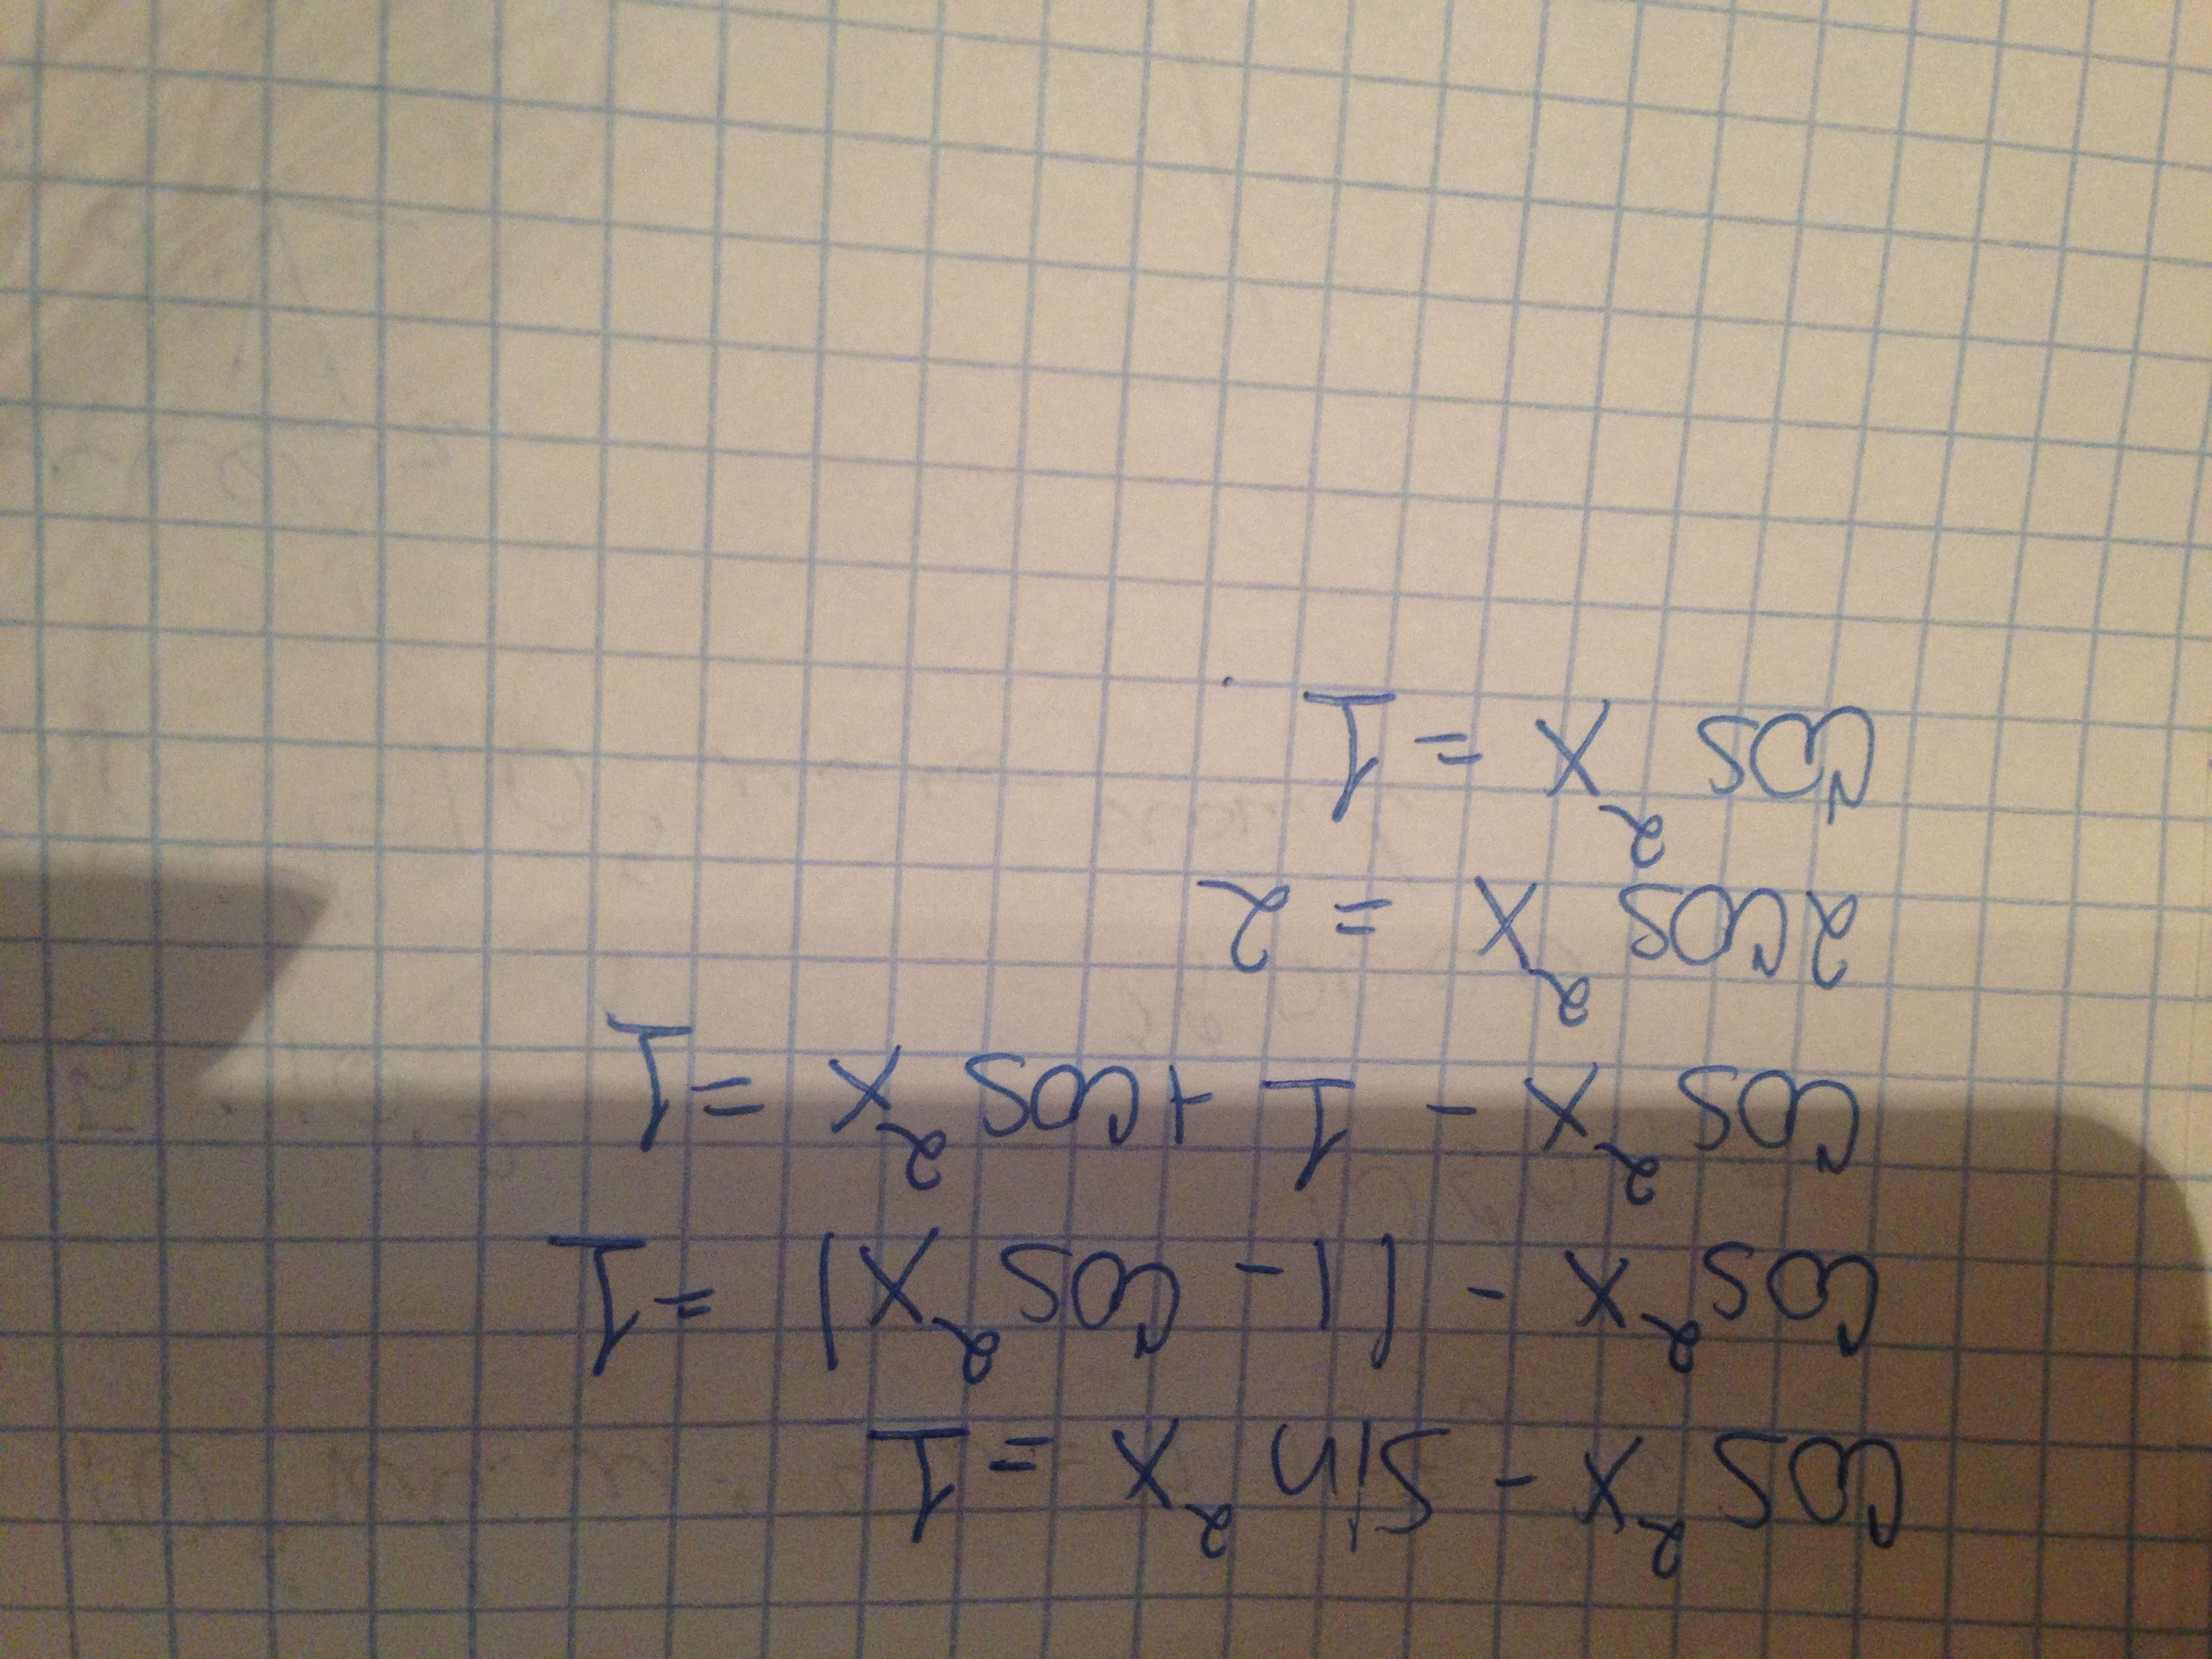 cos²x - sin²x = 1
cos²x - (1 - cos²x) = 1
cos²x - 1 + cos²x = 1
2cos²x = 2
cos²x = 1